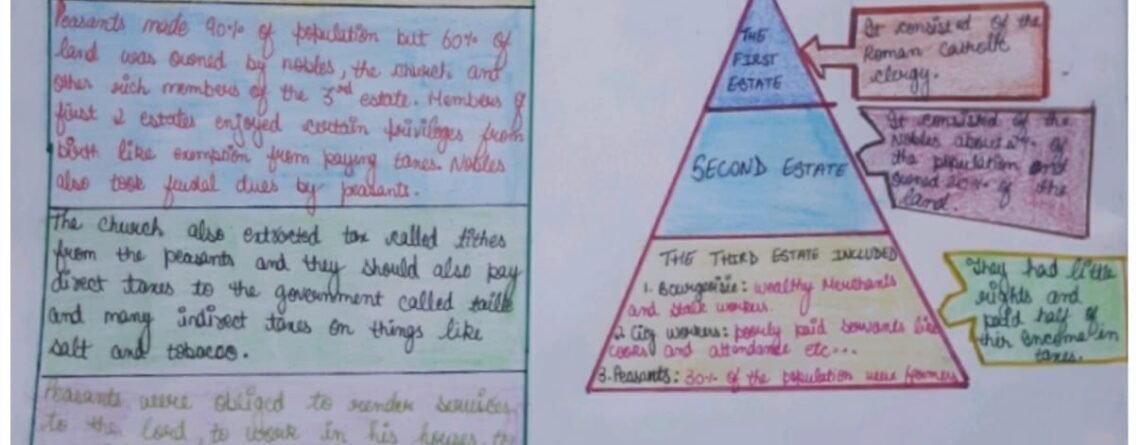 Peasants made 90% of population but 60% of
land was owned by nobles, the church and
other rich members of the 3rd estate. Members of
first 2 estates enjoyed certain privileges from
birth like exemption from paying taxes. Nobles
also took feudal dues by peasants.
The church also extracted tax called tithes
from the peasants and they should also pay
direct taxes to the government called taille
and many indirect taxes on things like
salt and tobacco.
Peasants were obliged to render services
to the lord, to work in his houses, the
THE
FIRST
ESTATE
It consisted of the
Roman Catholic
clergy.
SECOND ESTATE
It consisted of the
Nobles about of
the population and
owned 20% of the
land.
THE THIRD ESTATE INCLUDED
1. Bourgeoisie: wealthy Merchants
and workers.
2. City workers: poorly paid servants like
cooks and attendance etc...
3. Peasants: 30% of the population were farmers
They had little
rights and
paid half of
thir income in
taxes.